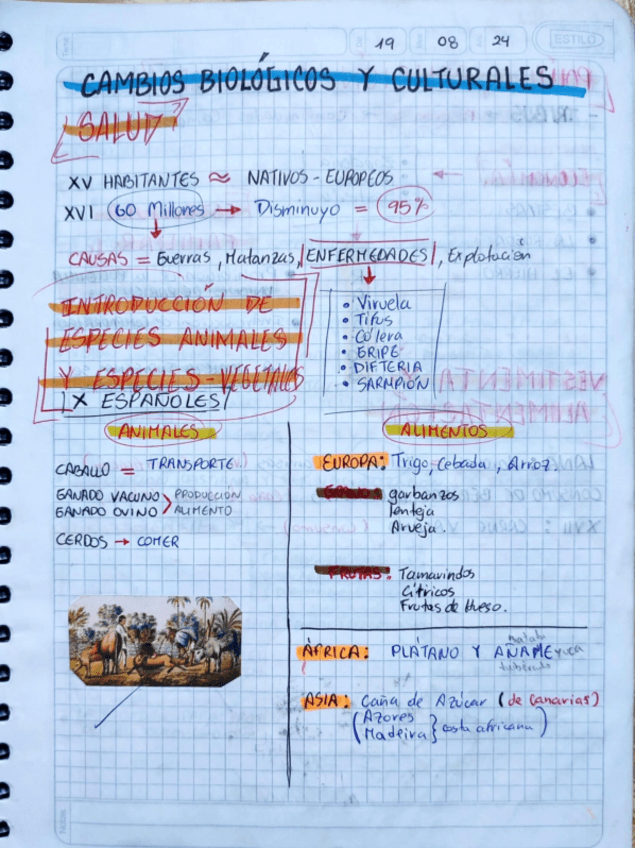 19 08 24
ESTILO
CAMBIOS BIOLÓGICOS Y CULTURALES
SALUD
XV HABITANTES ≈ NATIVOS - EUROPEOS
XVI 60 Millones → Disminuyo = 95%
CAUSAS = Guerras, Matanzas, ENFERMEDADES, Explotación
• Viruela
• Tifus
• Cólera
• GRIPE
• DIFTERIA
• SARAPIÓN
INTRODUCCIÓN DE
ESPECIES ANIMALES
Y ESPECIES - VEGETALES
X ESPAÑOLES
ANIMALES
CABALLO = TRANSPORTE
GANADO VACUNO > PRODUCCIÓN
GANADO OVINO ALIMENTO
CERDOS → COMER
ALIMENTOS
EUROPA: Trigo, Cebada, Arroz.
garbanzos
lenteja
Arveja.
FRUTAS: Tamarindos
Cítricos
Frutas de Hueso.
ÁFRICA: PLÁTANO Y AÑAME yuca
tubérculo
ASIA: Caña de Azúcar (de Canarias)
(Azores
Madeira } costa africana)
Notas